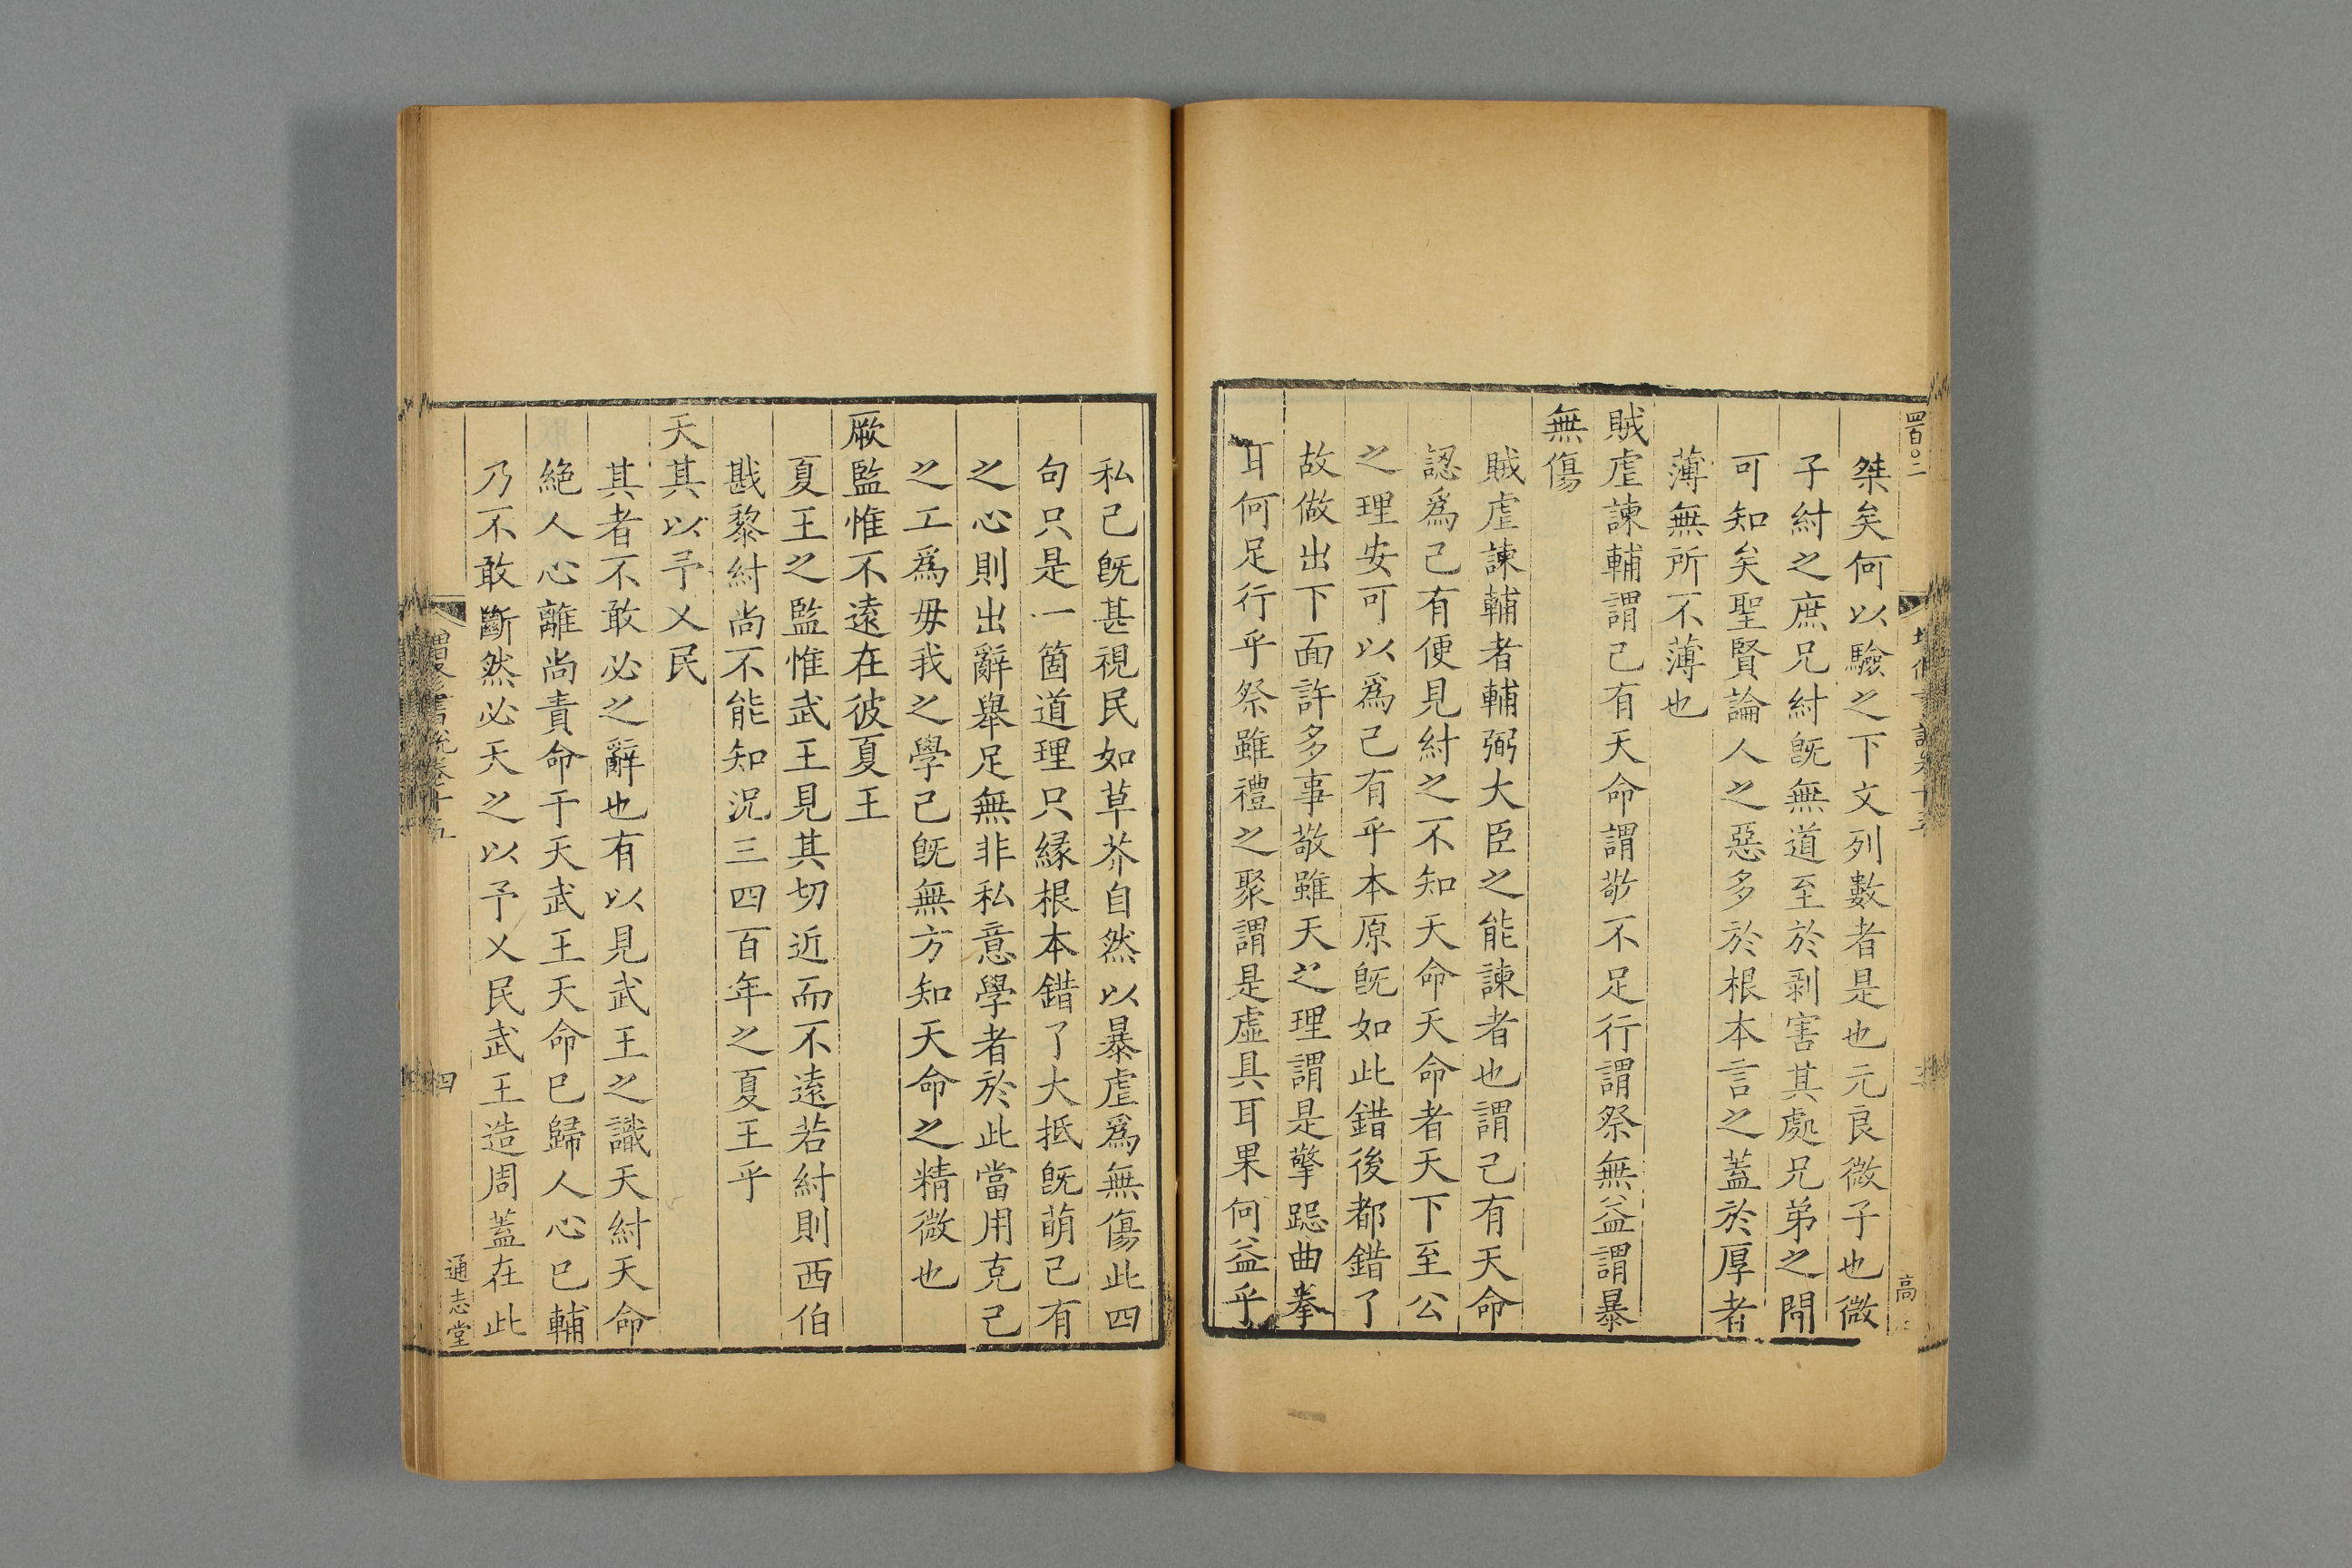 四百〇二
高
桀矣何以驗之下文列數者是也元良微子也微
子紂之庶兄紂旣無道至於剥害其處兄弟之間
可知矣聖賢論人之惡多於根本言之蓋於厚者
薄無所不薄也
賊虐諫輔謂己有天命謂敬不足行謂祭無益謂暴
無傷
賊虐諫輔者輔弼大臣之能諫者也謂己有天命
認爲己有便見紂之不知天命天命者天下至公
之理安可以爲己有乎本原旣如此錯後都錯了
故做出下面許多事敬雖天之理謂是擎跽曲拳
耳何足行乎祭雖禮之聚謂是虛具耳果何益乎
私己旣甚視民如草芥自然以暴虐爲無傷此四
句只是一箇道理只緣根本錯了大抵旣萌己有
之心則出辭舉足無非私意學者於此當用克己
之工爲毋我之學己旣無方知天命之精微也
厥監惟不遠在彼夏王
夏王之監惟武王見其切近而不遠若紂則西伯
戡黎紂尚不能知況三四百年之夏王乎
天其以予乂民
其者不敢必之辭也有以見武王之識天紂天命
絶人心離尚責命于天武王天命已歸人心已輔
乃不敢斷然必天之以予乂民武王造周蓋在此
書說卷十五
四
通志堂